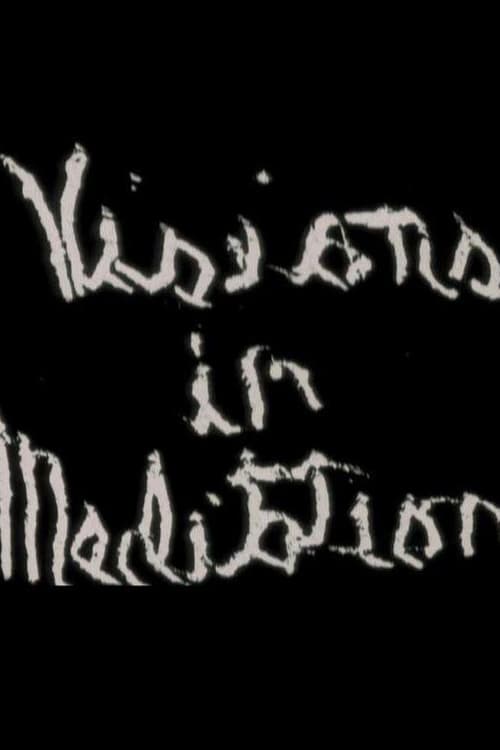 Visions
in
Meditation